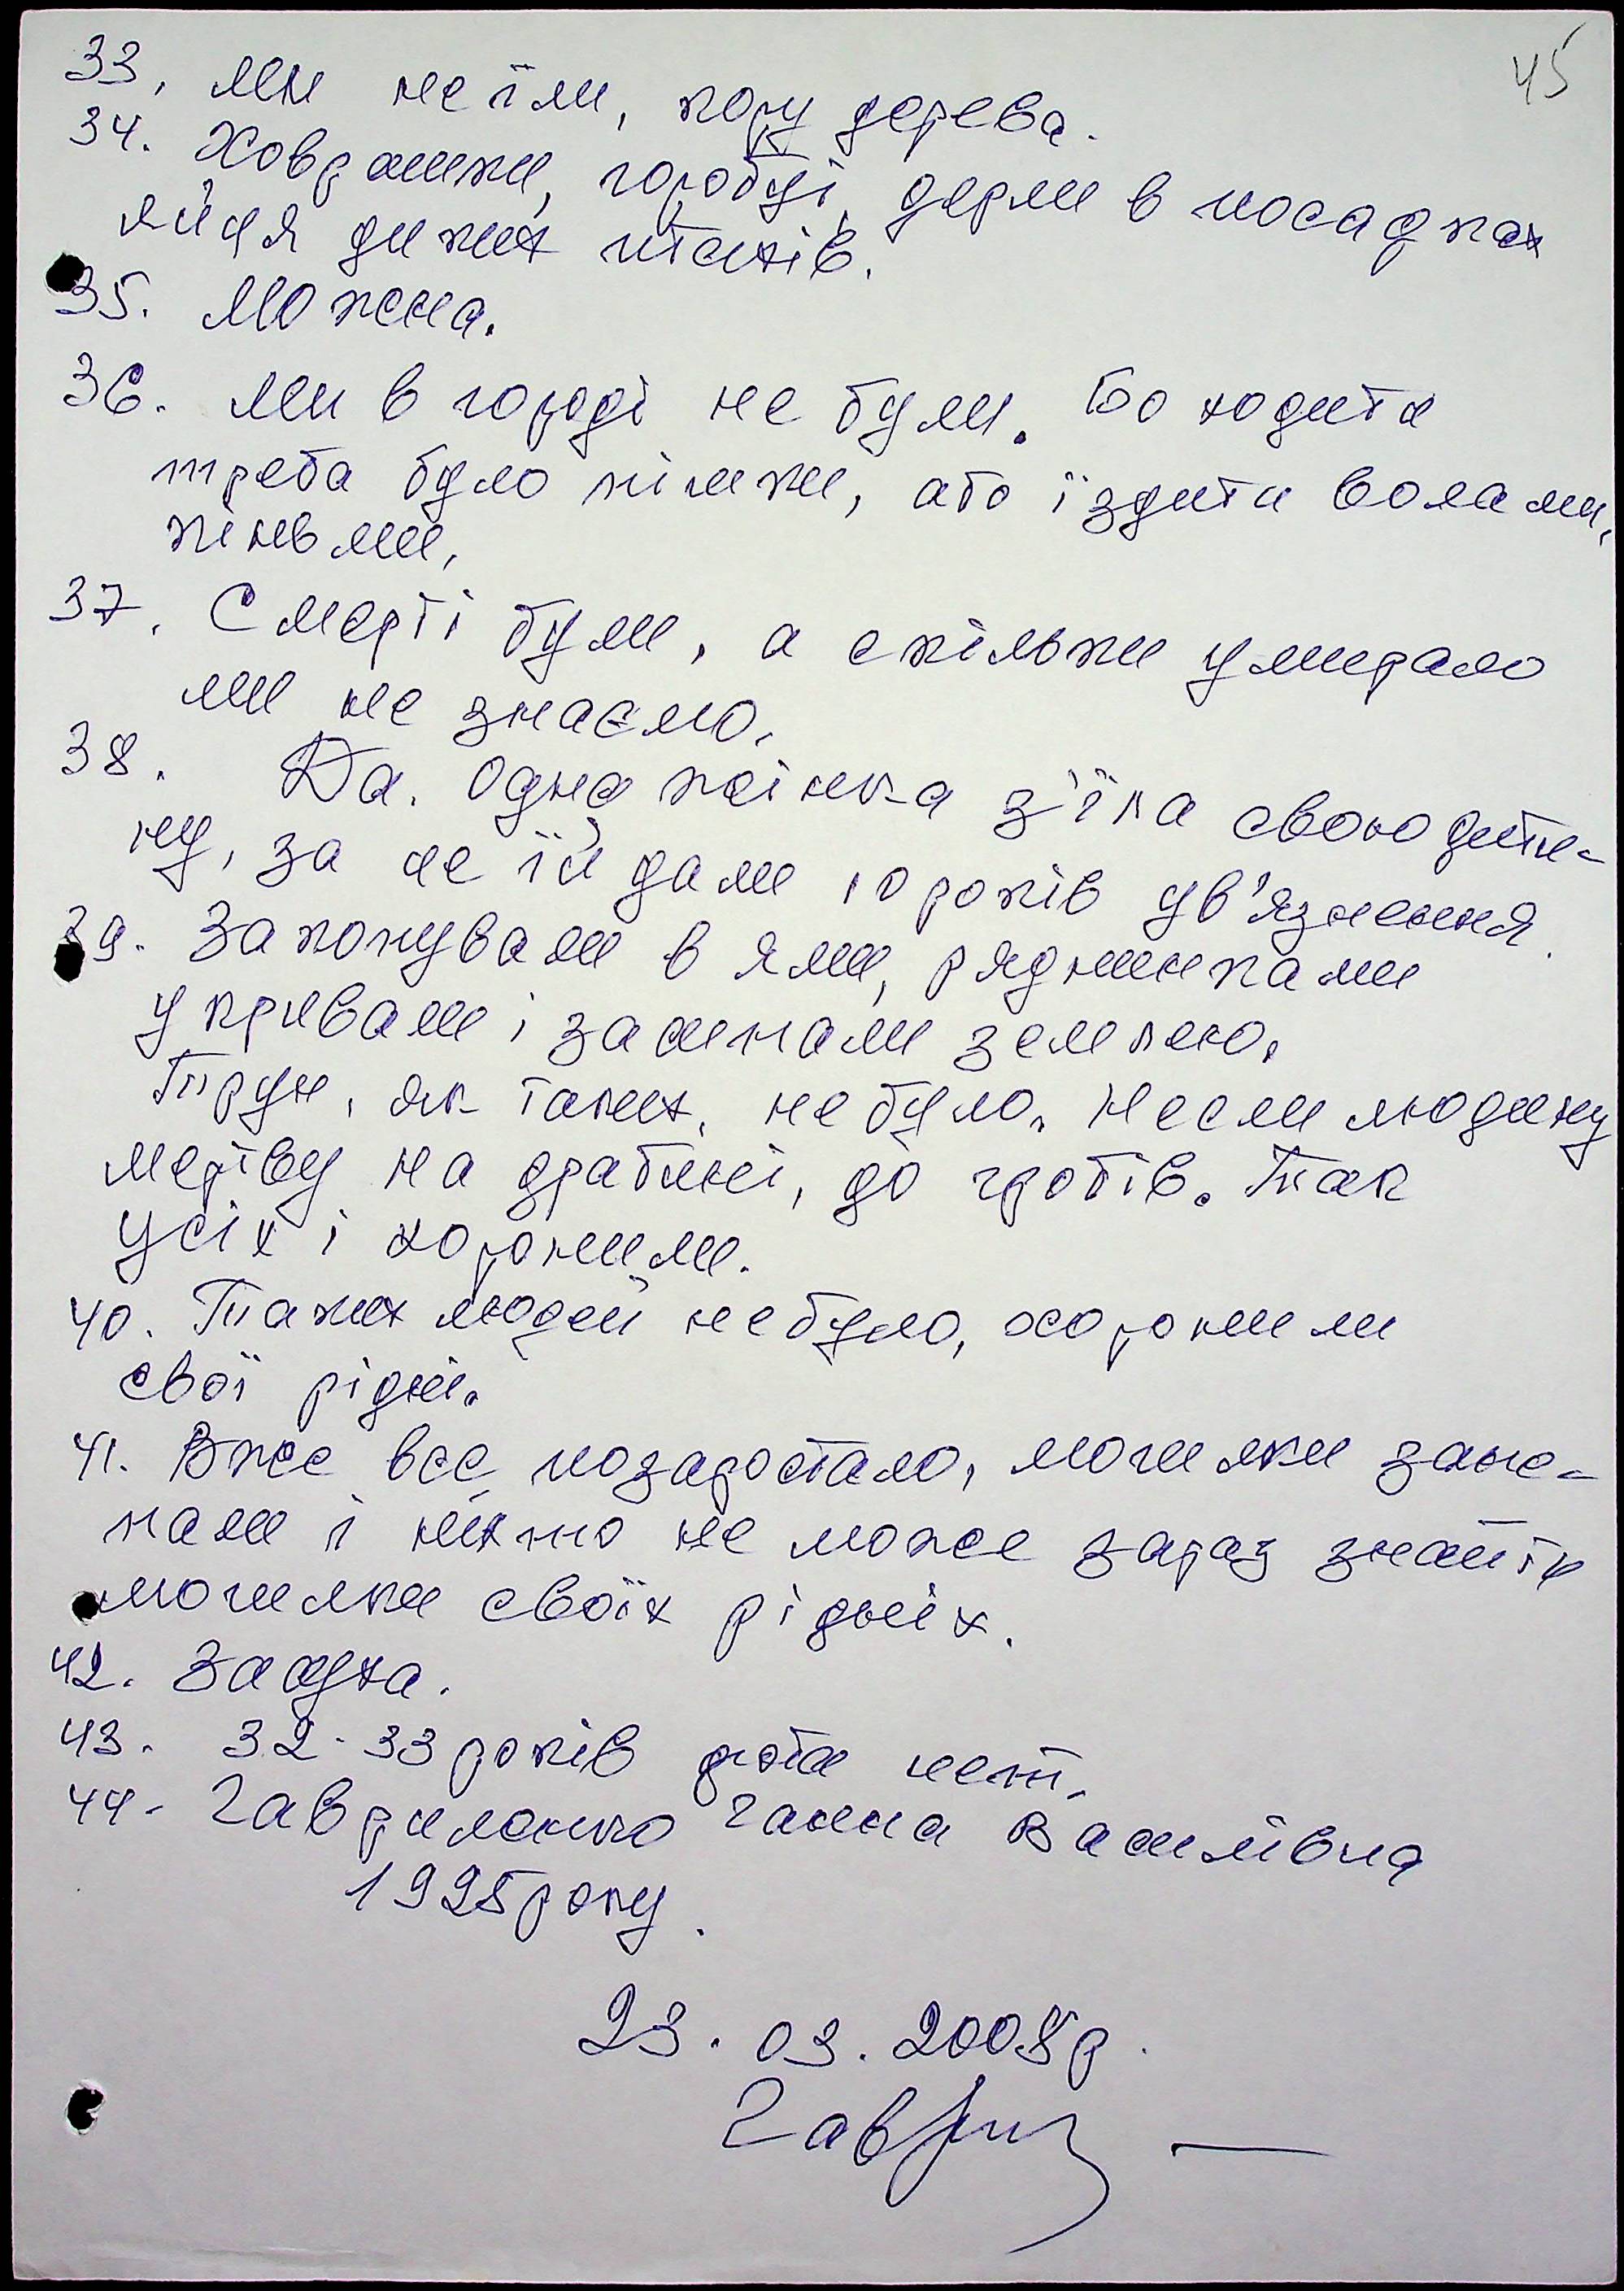 45
33. Ми не їли, кору дерева.
34. Ховрашки, горобці, дерли в посадках
яйця диких птахів.
35. Можна.
36. Ми в городі не були. Бо ходити
треба було пішки, або їздити волами,
кіньми,
37. Смерті були, а скільки умирало
ми не знаємо.
38. Да. Одна жінка з'їла свою дити-
ну, за це їй дали 10 років ув'язнення.
39. Закопували в ями, ряднинками
укривали і засипали землею.
Трун, як таких, не було. Несли людину
мертву на драбині, до гробів. Так
усіх і хоронили.
40. Таких людей не було, хоронили
свої рідні.
41. Вже все позаростало, могилки зане-
пали і ніхто не може зараз знайти
могилки своїх рідних.
42. Засуха.
43. 32-33 років дати нет.
44. Гавриленко Ганна Василівна
1925 року.
23.03.2008 р.
Гаврил